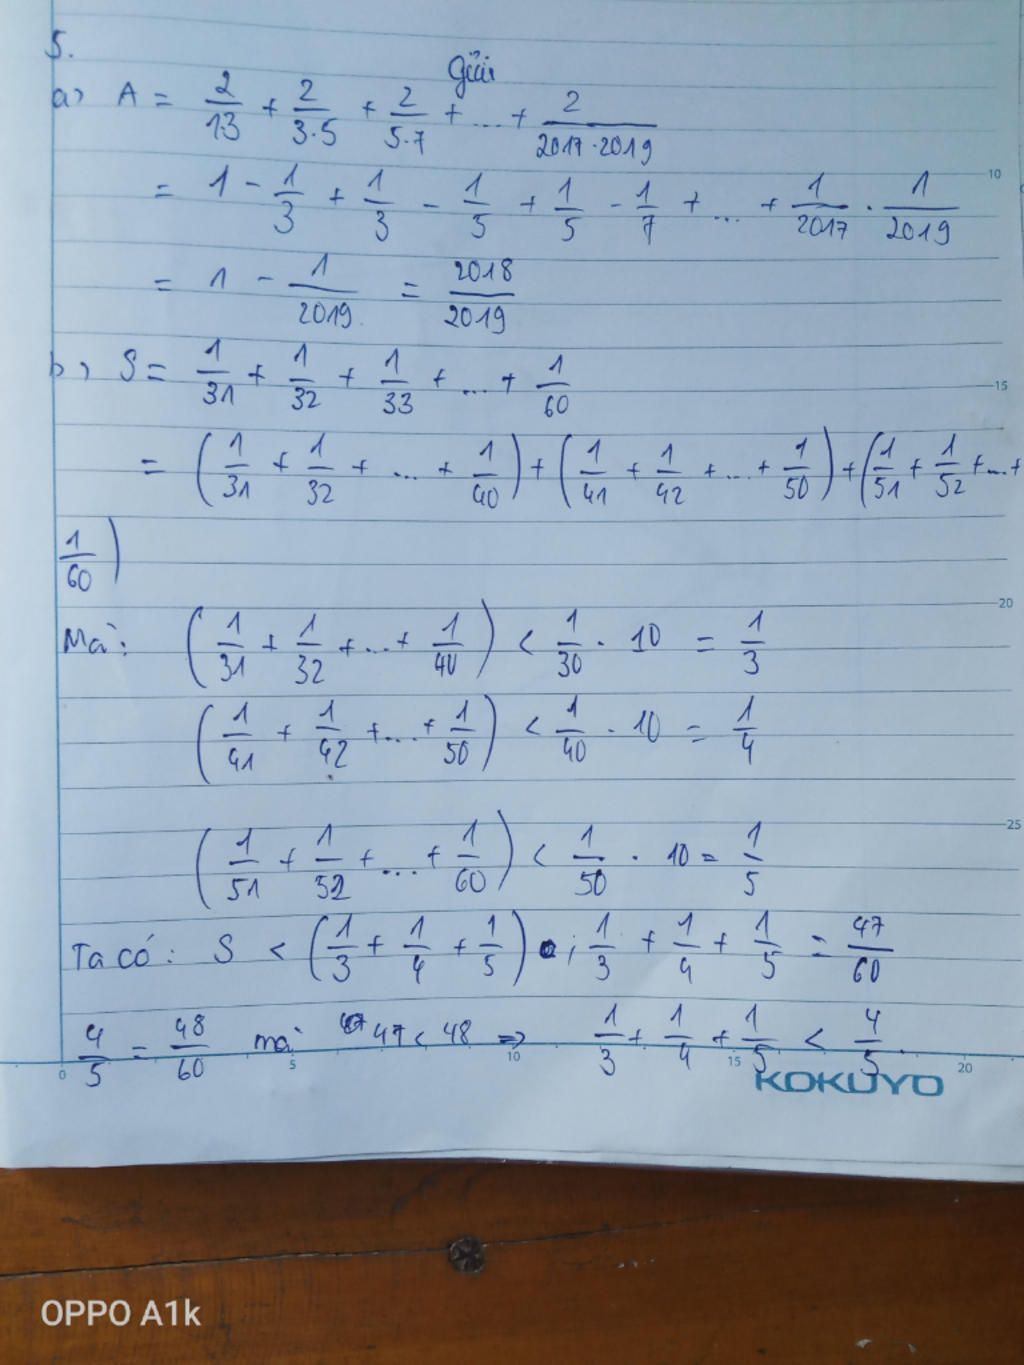 5.
Giải
a) A = 2/1.3 + 2/3.5 + 2/5.7 + ... + 2/2017.2019
= 1 - 1/3 + 1/3 - 1/5 + 1/5 - 1/7 + ... + 1/2017 . 1/2019
= 1 - 1/2019 = 2018/2019
b) S = 1/31 + 1/32 + 1/33 + ... + 1/60
= (1/31 + 1/32 + ... + 1/40) + (1/41 + 1/42 + ... + 1/50) + (1/51 + 1/52 + ... +
1/60)
Mà: (1/31 + 1/32 + ... + 1/40) < 1/30 . 10 = 1/3
(1/41 + 1/42 + ... + 1/50) < 1/40 . 10 = 1/4
(1/51 + 1/52 + ... + 1/60) < 1/50 . 10 = 1/5
Ta có: S < (1/3 + 1/4 + 1/5) ; 1/3 + 1/4 + 1/5 = 47/60
4/5 = 48/60 mà 47 < 48 => 1/3 + 1/4 + 1/5 < 4/5.
10
15
20
25
0 5 10 15 20
KOKUYO
OPPO A1k